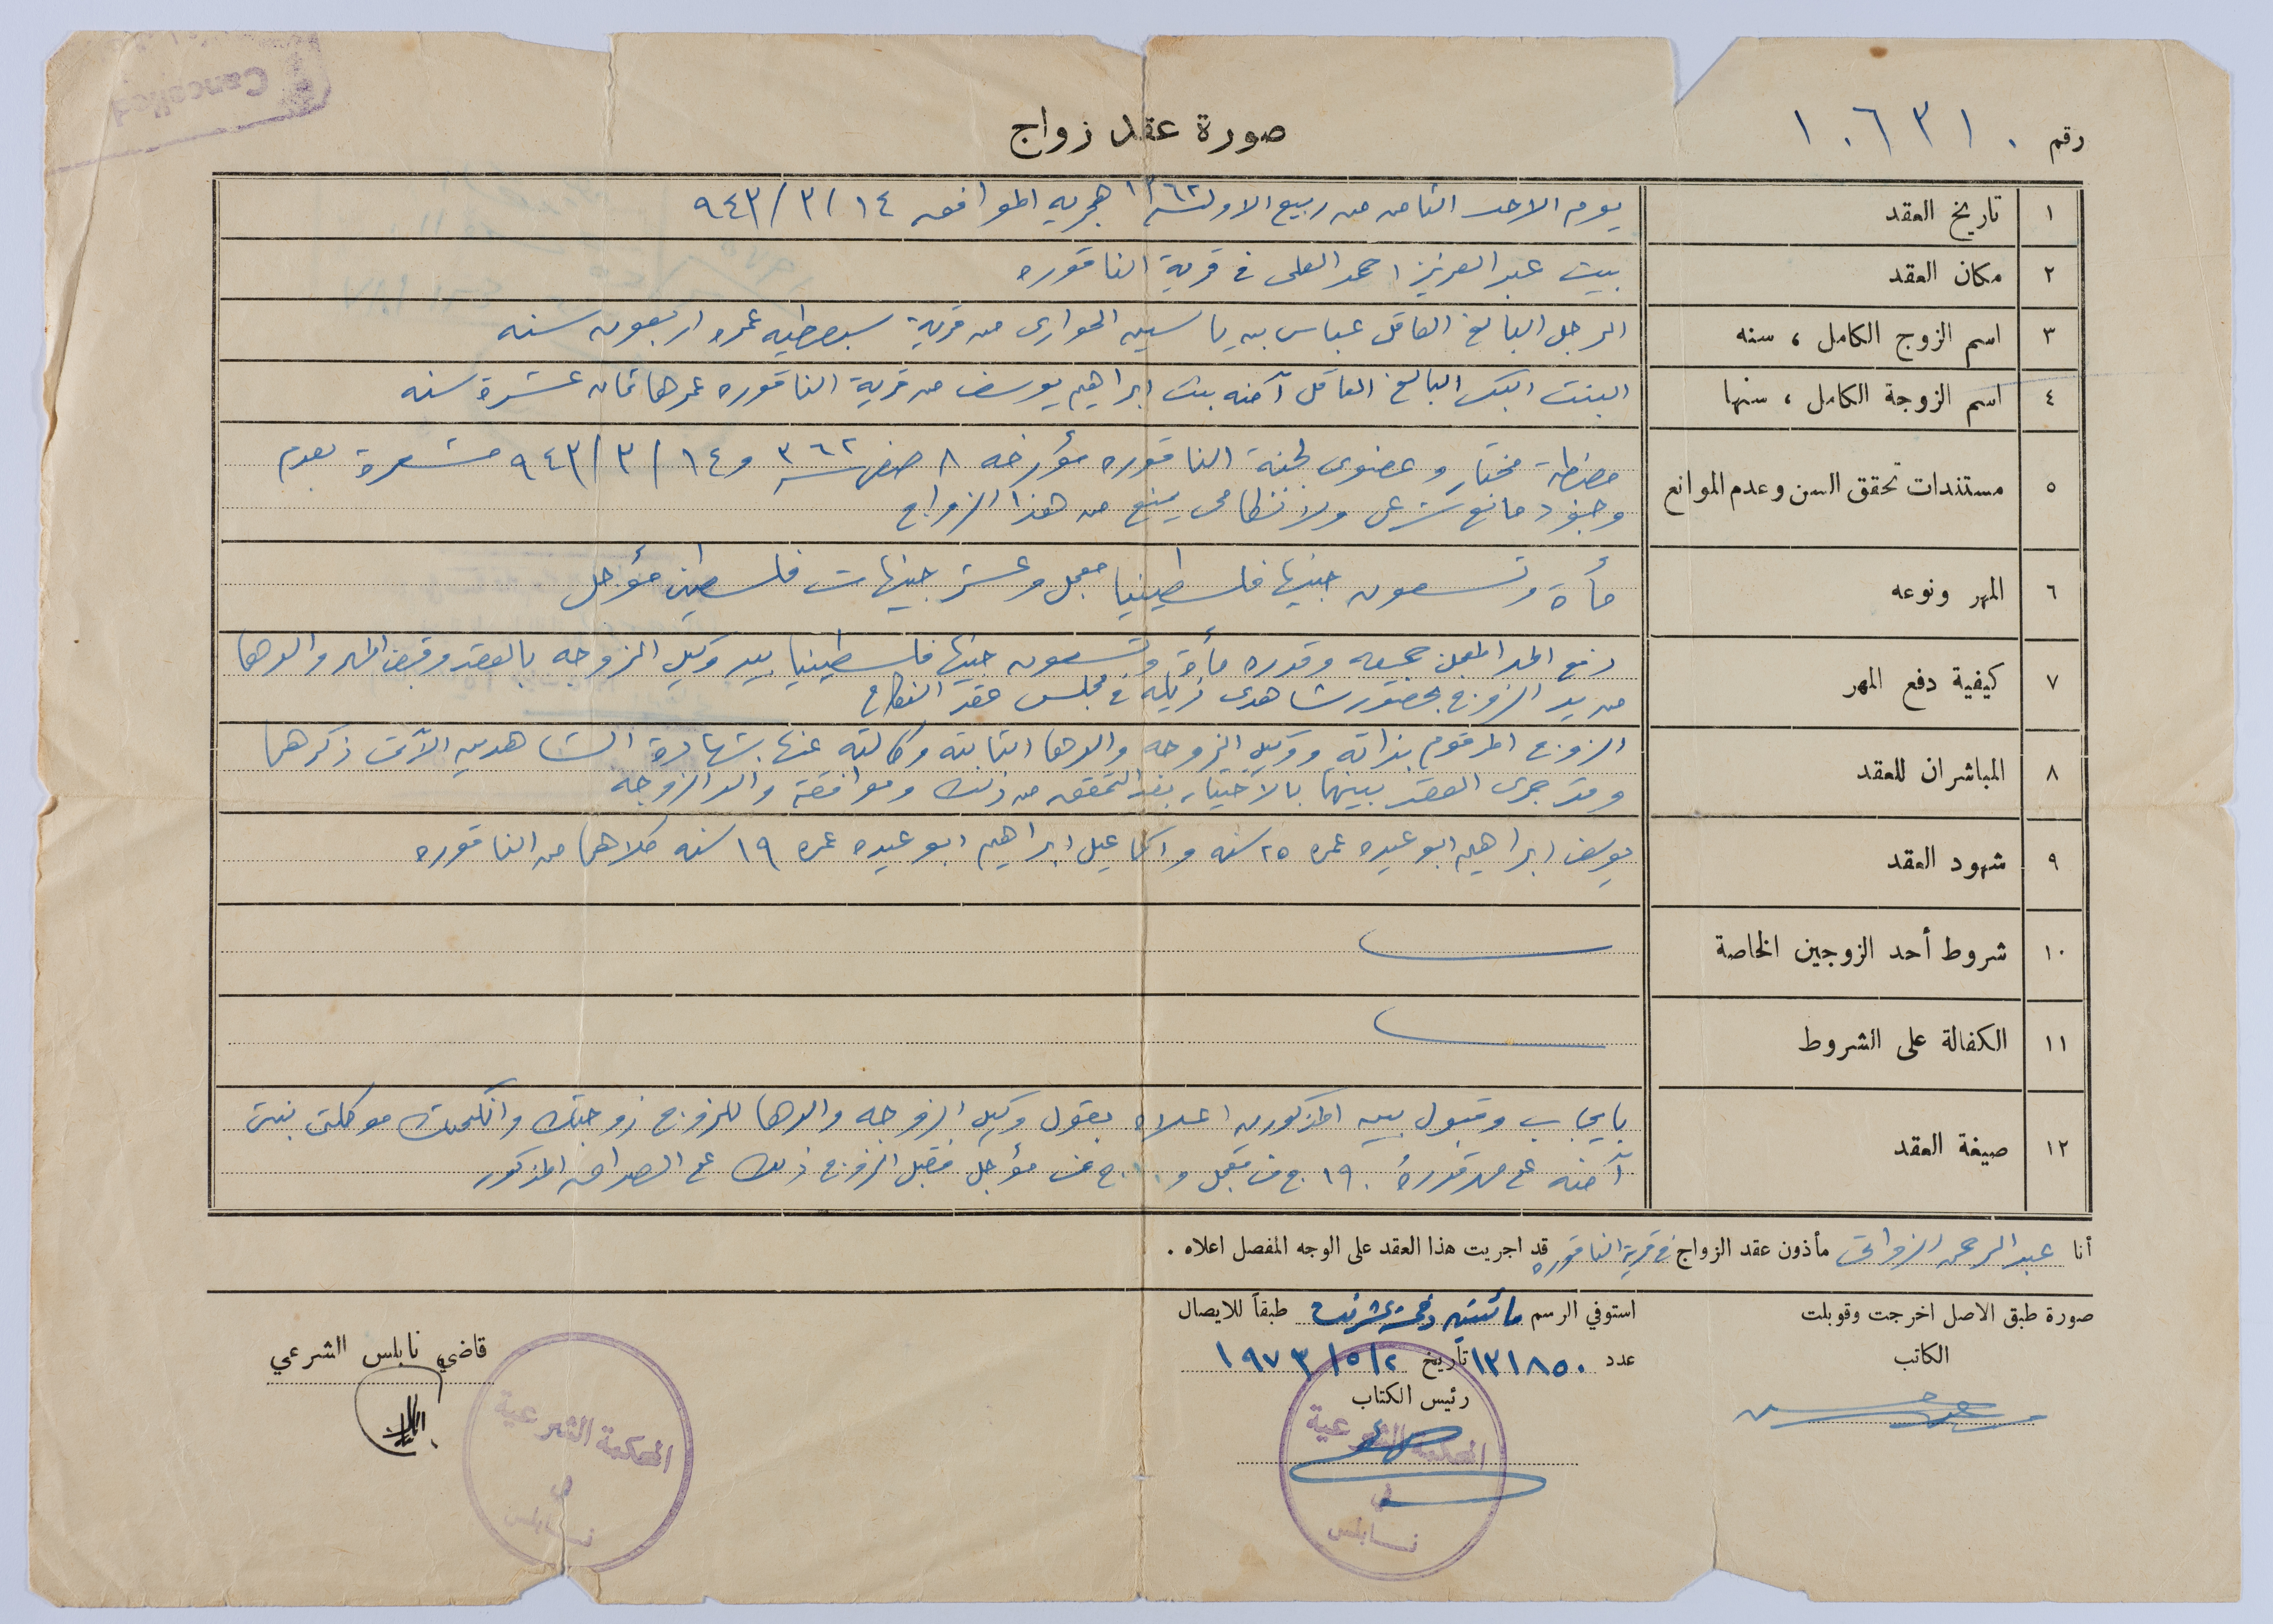 Cancelled
صورة عقد زواج
رقم ١٠٦٣١٠
١ تاريخ العقد يوم الاحد الثامن من ربيع الاول سنة ١٣٦٢ هجريه الموافق ١٤/٣/٩٤٣
٢ مكان العقد بيت عبد العزيز احمد العلي في قرية الناقوره
٣ اسم الزوج الكامل ، سنه الرجل البالغ العاقل عباس بن ياسين الحواري من قرية سبصطيه عمره اربعون سنه
٤ اسم الزوجة الكامل ، سنها البنت البكر البالغ العاقل آمنه بنت ابراهيم يوسف من قرية الناقوره عمرها ثمان عشرة سنه
٥ مستندات تحقق السن وعدم الموانع مضبطة مختار وعضوي لجنة الناقوره مؤرخه ٨ صفر سنة ٣٦٢ و ١٤/٣/٩٤٣ مشعرة بعدم
وجود مانع شرعي ولا نظامي يمنع من هذا الزواج
٦ المهر ونوعه مأة وتسعون جنيها فلسطينيا معجل وعشر جنيهات فلسطيني مؤجل
٧ كيفية دفع المهر دفع المهر المعجل جميعه وقدره مأة وتسعون جنيها فلسطينيا بيد وكيل الزوجه بالعقد وقبض المهر والدها
من يد الزوج بحضور شاهدي ذيله في مجلس عقد النكاح
٨ المباشران للعقد الزوج المرقوم بذاته ووكيل الزوجه والدها الثابته وكالته عنها بشهادة الشاهدين الآتي ذكرهما
وقد جرى العقد بينهما بالاختيار بعد التحقق من ذلك وموافقة والد الزوجة
٩ شهود العقد يوسف ابراهيم ابو عيده عمره ٢٥ سنه واسماعيل ابراهيم ابو عيده عمره ١٩ سنه كلاهما من الناقوره
١٠ شروط أحد الزوجين الخاصة
١١ الكفالة على الشروط
١٢ صيغة العقد بايجاب وقبول بين المذكورين اعلاه بقول وكيل الزوجه والدها للزوج زوجتك وانكحتك موكلتي بنتي
آمنه على مهر قدره ١٩٠ ج ف معجل و ١٠ ج ف مؤجل فقبل الزوج ذلك على الصداق المذكور
أنا عبد الرحمن الزواتي مأذون عقد الزواج في قرية الناقوره قد اجريت هذا العقد على الوجه المفصل اعلاه .
صورة طبق الاصل اخرجت وقوبلت
الكاتب
استوفي الرسم مائتين وخمسة عشر طبقاً للايصال
عدد ١٣١٨٥٠ تاريخ ١٩٧٣/٥/٢
رئيس الكتاب
المحكمة الشرعية
في
نابلس
قاضي نابلس الشرعي
المحكمة الشرعية
في
نابلس